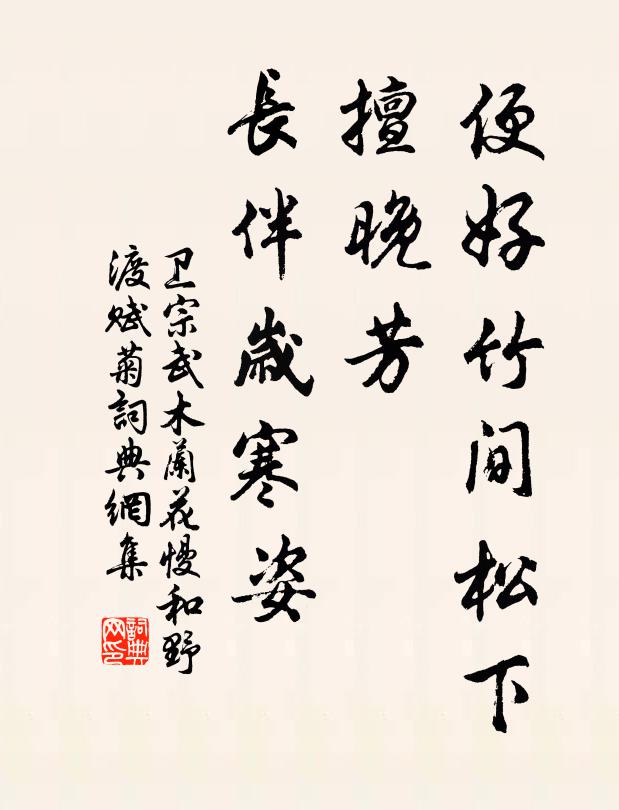 便好竹間松下
擅晚芳
長伴歲寒姿
卫宗武木蘭花慢和野
渡賦菊詞典網集
詞典网印